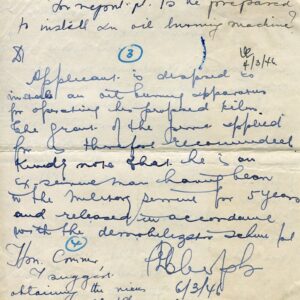 for report pl. Is he prepared
to install an oil burning machine?
3
4/3/46
Applicant is prepared to
install an oil burning apparatus
for operating his proposed kiln.
The grant of the permit applied
for is therefore recommended
Kindly note that he is an
Ex-serviceman having been
in the Military service for 5 years
and released in accordance
with the demobilization scheme pl
4
Hon. Commr
I suggest
obtaining the views
6/3/46